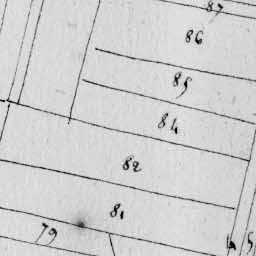 87
86
85
84
82
81
79